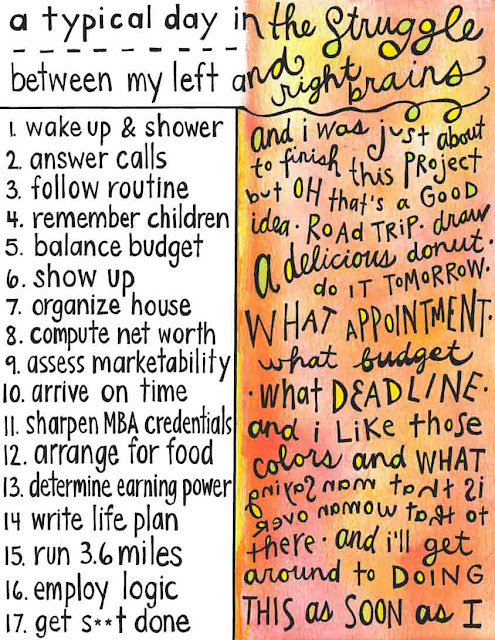 a typical day in the struggle
between my left and right brains
1. wake up & shower
2. answer calls
3. follow routine
4. remember children
5. balance budget
6. show up
7. organize house
8. compute net worth
9. assess marketability
10. arrive on time
11. sharpen MBA credentials
12. arrange for food
13. determine earning power
14 write life plan
15. run 3.6 miles
16. employ logic
17. get s**t done
and i was just about
to finish this PROJECT
but OH that's a GOOD
idea. ROAD TRIP. draw
a delicious donut.
do IT TOMORROW.
WHAT APPOINTMENT.
what budget
. what DEADLINE.
and i LiKe those
colors and WHAT
is that man saying
to that woman over
there. and i'll get
around to DOING
THIS as SOON as I